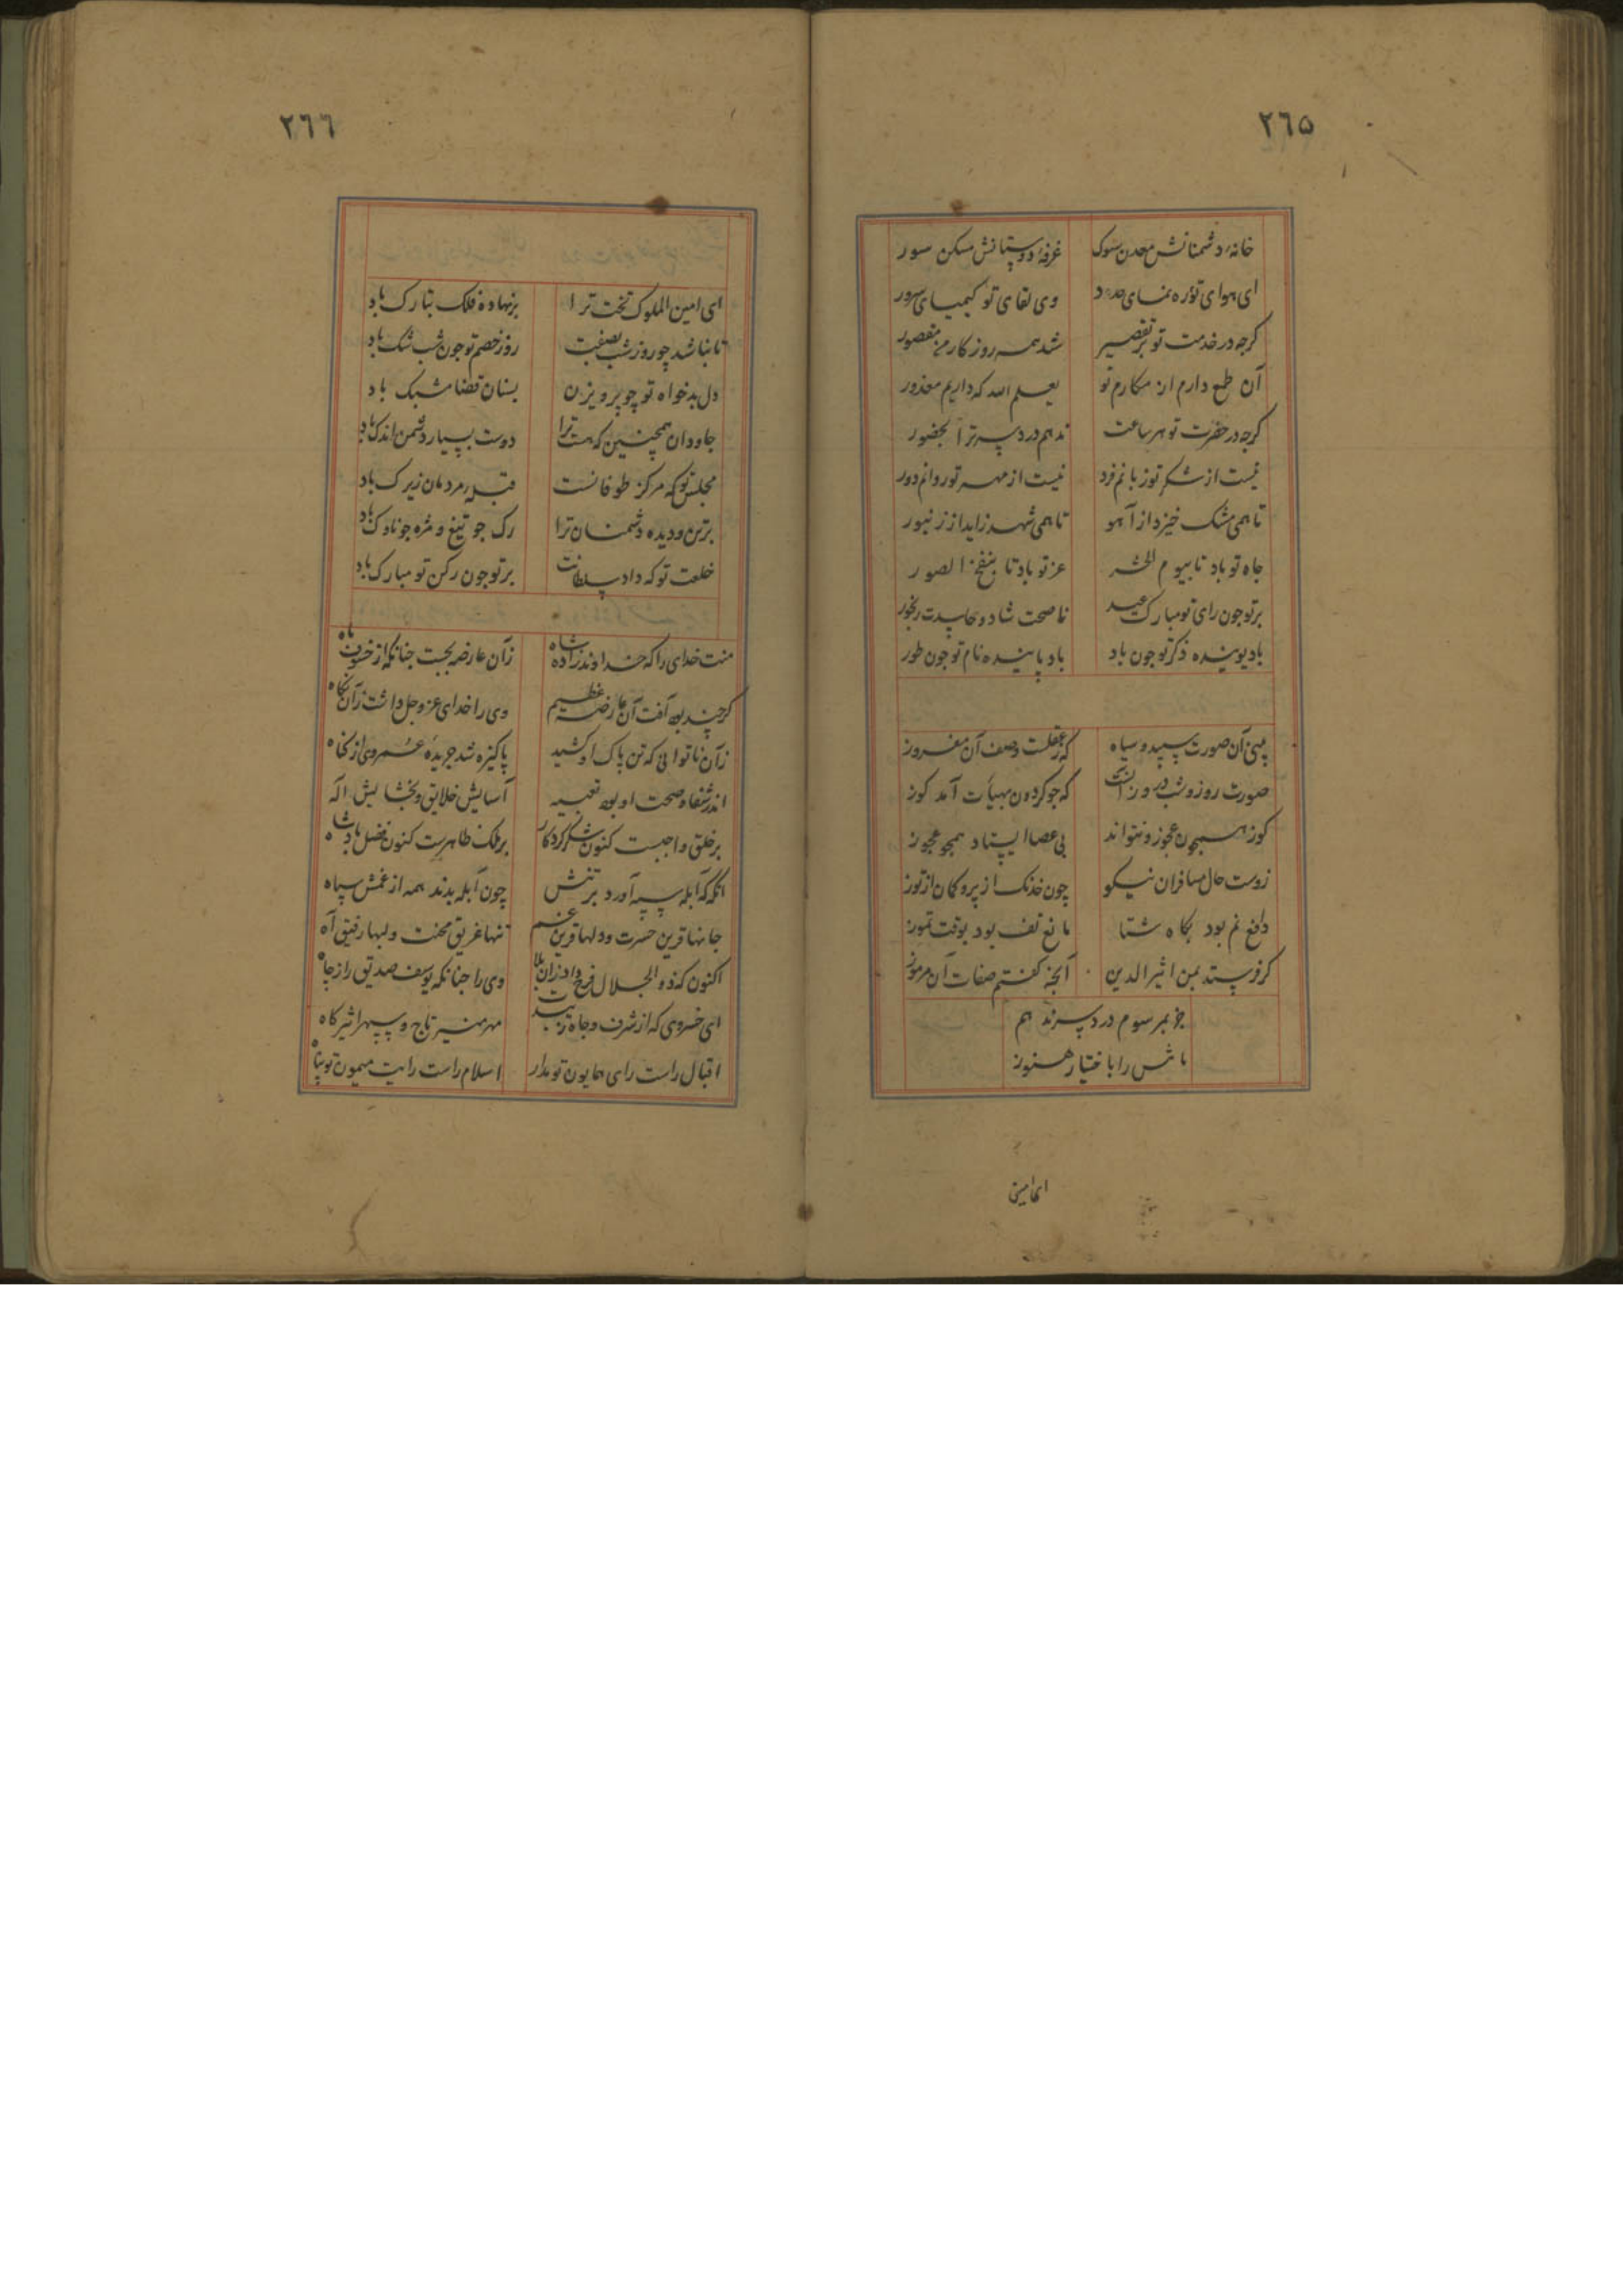 ٢٦٥
خانهٔ دشمنانش معدن سوک غرفهٔ دوستانش مسکن سور
ای هوای تو ره نمای وی لقای تو کیمیای سرور
کرجه در خدمت تو بر تقصیر شد همه روزکار من مقصور
آن طمع دارم از مکارم تو یعلم الله که داریم معذور
کرجه در حضرت تو هر ساعت ندهم درد سر ترا بحضور
نیست از شکر تو زبانم فرد نیست از مهر تو روانم دور
تا همی مشک خیزد از آهو تا همی شهد زاید از زنبور
جاه تو باد تا بیوم الحشر عز تو باد تا بنفخ الصور
بر تو جون رای تو مبارک عید ناصحت شاد و حاسدت رنجور
باد پوینده ذکر تو جون باد باد پاینده نام تو جون طور
بینی آن صورت سپید و سیاه که ز عقلست وصف آن مفروز
صورت روز و شب درو بر است که جو کردون بهیأت آمد کوز
کوز همجون عجوز و نتواند بی عصا ایستاد همجو عجوز
زوست حال مسافران نیکو چون خدنک از پر و کمان از توز
دافع نم بود بکاه شتا مانع تف بود بوقت تموز
کر فرستد بمن اثیر الدین آنجه کفتم صفات آن مرموز
جز بمرسوم درد سر ندهم
تا شمس را باختیار هنوز
ای امین
٢٦٦
ای امین الملوک تخت ترا بر نهاده فلک تبارک باد
تا نباشد چو روز شب بصفت روز خصم تو جون شب شک باد
دل بدخواه تو چو پرویزن بسنان قضا مشبک باد
جاودان همچنین که هست ترا دوست بسیار و دشمن اندک باد
مجلس تو که مرکز طوفانست قبلهٔ مردمان زیرک باد
بر تن و دیده دشمنان ترا رک جو تیغ و مژه جو ناوک باد
خلعت تو که داد سلطانت بر تو جون رکن تو مبارک باد
منت خدای را که خداوند زاده شاه زان عارضه بجست جنانکه از خسوف ماه
کرچند بود آفت آن عارضه عظیم وی را خدای عز و جل داشت زان نکاه
زان ناتوانی که تن پاک او کشید پاکیزه شد جریدهٔ عمر وی از کناه
اندر شفاء و صحت او بود تعبیه آسایش خلایق و بخشایش اله
بر خلق واجبست کنون شکر کردکار بر ملک ظاهرست کنون فضل پادشاه
آنکه که آبله سپه آورد بر تنش چون آبله بدند همه از غمش سپاه
جانها قرین حسرت و دلها قرین غم تنها غریق محنت و لبها رفیق آه
اکنون که ذو الجلال فرج داد زان بلا وی را جنانکه یوسف صدیق را ز جاه
ای خسروی که از شرف و جاه زیبدت مهر منیر تاج و سپهر اثیر کاه
اقبال راست رای همایون تو مدار اسلام راست رایت میمون تو پناه